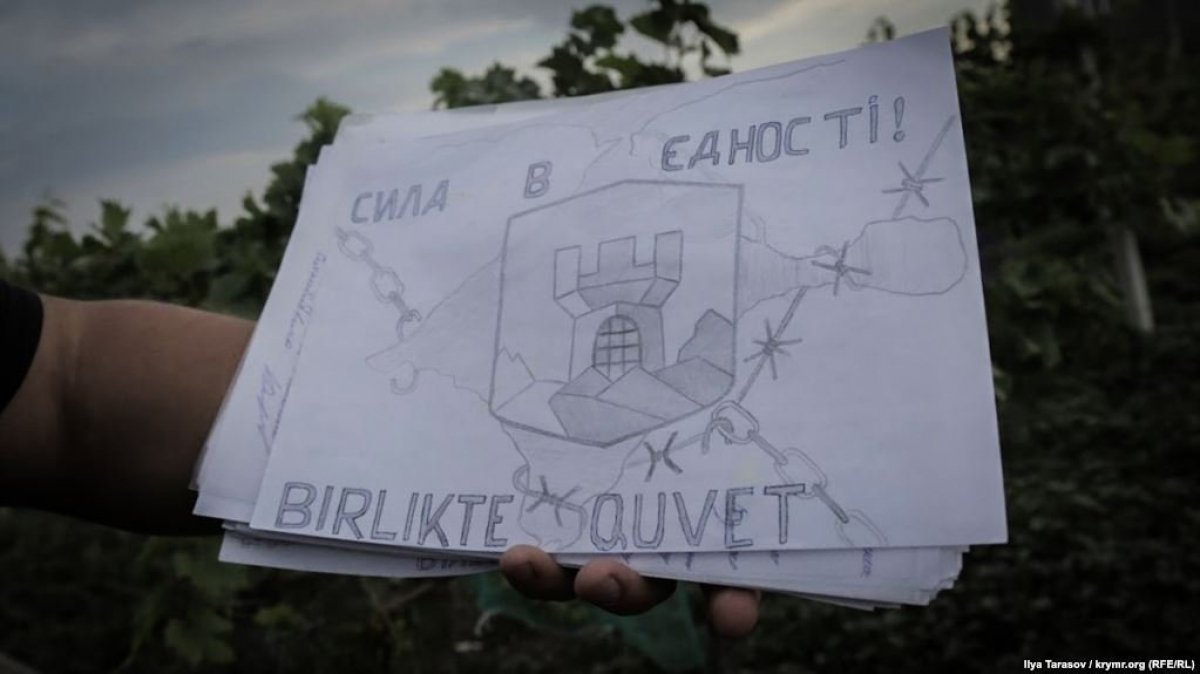 СИЛА В ЄДНОСТІ!
BIRLIKTE QUVET
Ilya Tarasov / krymr.org (RFE/RL)